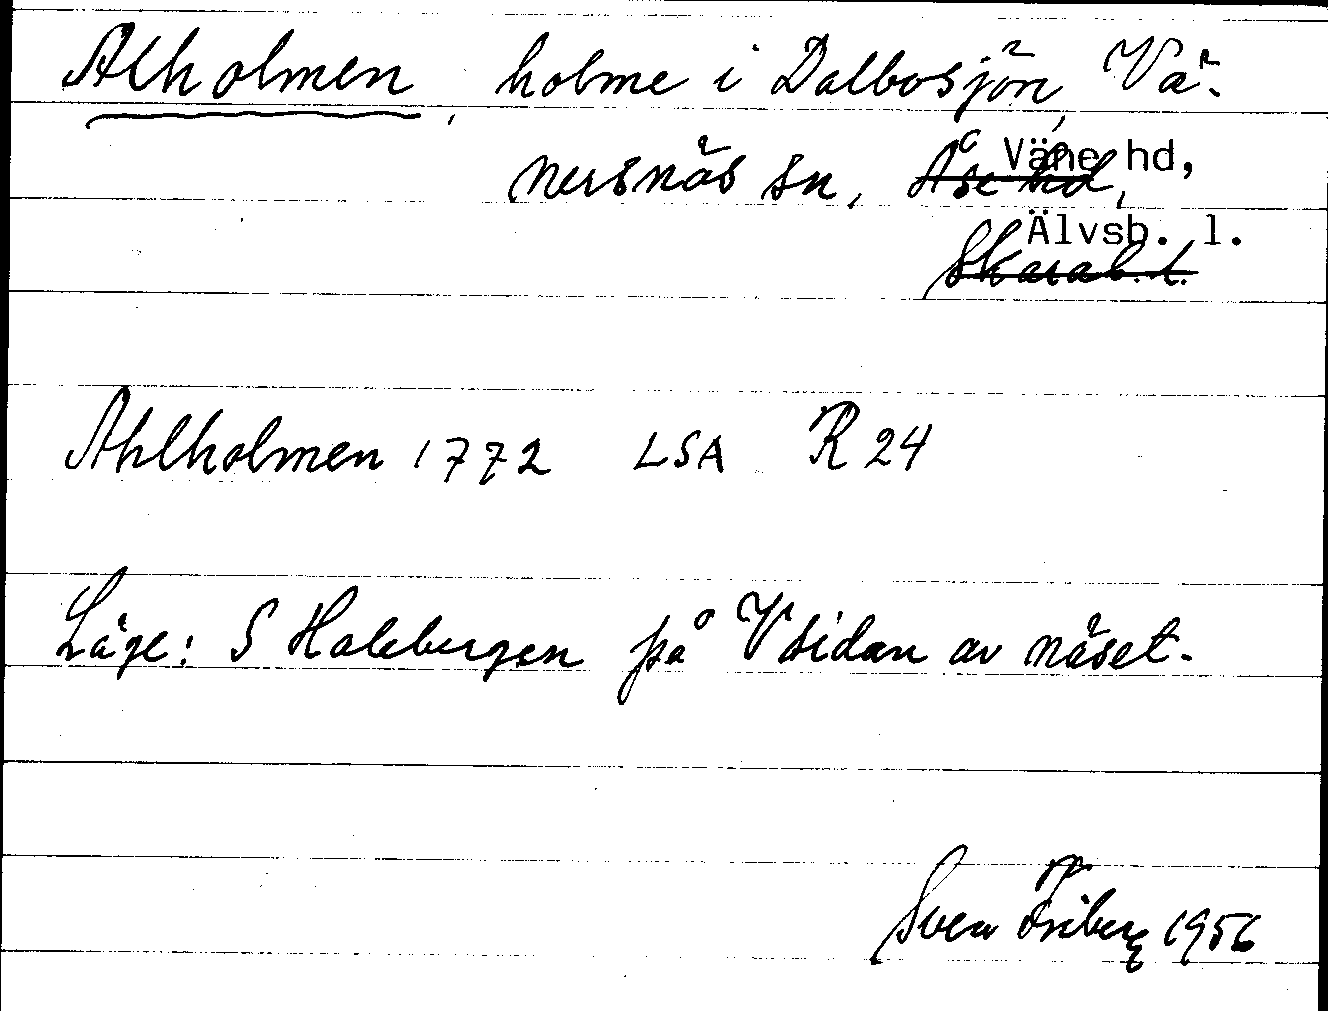 Alholmen, holme i Dalbosjön, Vä-
nersnäs sn, Åse hd, Väne hd,
Skarab. l. Älvsb. l.
Ahlholmen 1772 LSA R 24
Läge: S Halebergen på V sidan av näset.
Sven Friberg 1956